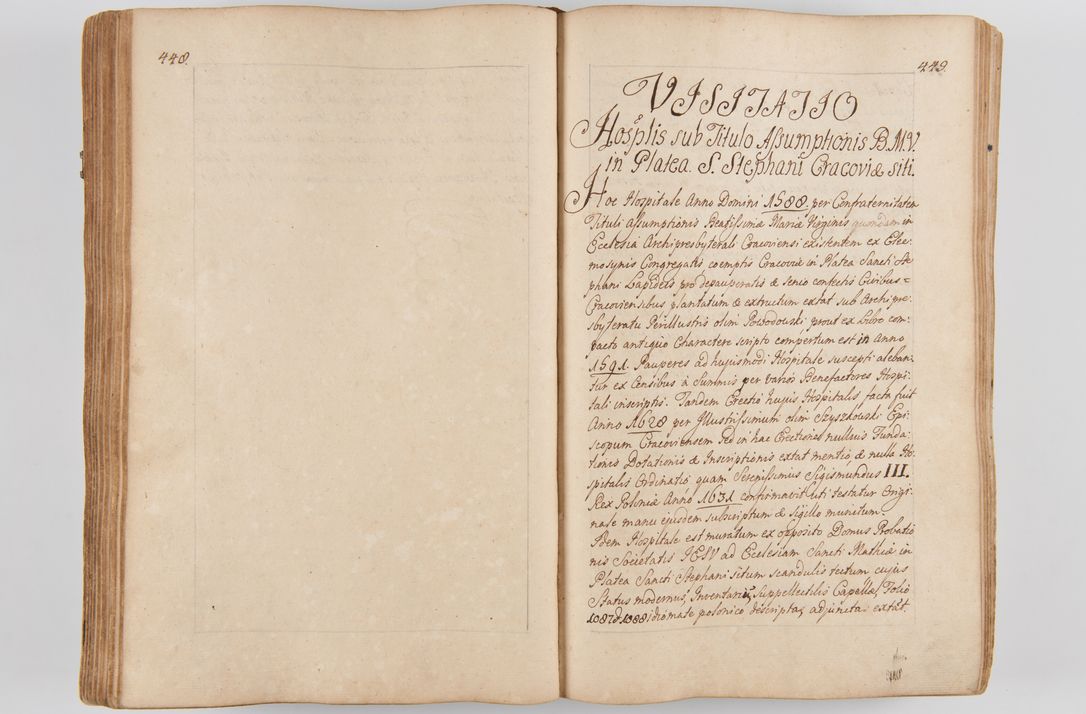 448.
449.
VISITATIO
Hosplis sub Titulo Assumptionis B.M.V.
in Platea S. Stephani Cracoviæ siti.
Hoc Hospitale Anno Domini 1588. per Confraternitatem
Tituli Assumptionis Beatissimæ Mariæ Virginis quondam in
Ecclesia Archipresbyterali Cracoviensi existentem ex Elee-
mosynis Congregatis coemptis Cracoviæ in Platea Sancti Ste
phani Lapideis pro depauperatis & senio confectis Civibus =
Cracoviensibus plantatum & extructum extat sub Archipre-
sbyteratu Perillustris olim Powodowski, prout ex Libro com-
pacto antiquo Charactere scripto compertum est in anno
1591. Pauperes ad hujusmodi Hospitale suscepti aleban-
tur ex Censibus à Summis per varios Benefactores Hospi-
tali inscriptis. Tandem Erectio hujus Hospitalis facta fuit
Anno 1628 per Illustrissimum olim Szyszkowski Epi-
scopum Cracoviensem sed in hac Erectione nullius Funda-
tionis Dotationis & Inscriptionis extat mentio, & nulla Ho-
spitalis Ordinatio quam Serenissimus Sigismundus III.
Rex Poloniæ Anno 1631 confirmavit uti testatur Origi-
nale manu ejusdem subscriptum & sigillo munitum.
Idem Hospitale est muratum ex opposito Domus Probatio
nis Societatis JESV ad Ecclesiam Sancti Mathiæ in
Platea Sancti Stephani situm scandulis tectum cujus
Status modernus, Inventariũ Suppellectilis Capellæ, Folio
1087 & 1088 idiomate polonico descripta, adjuncta extat.